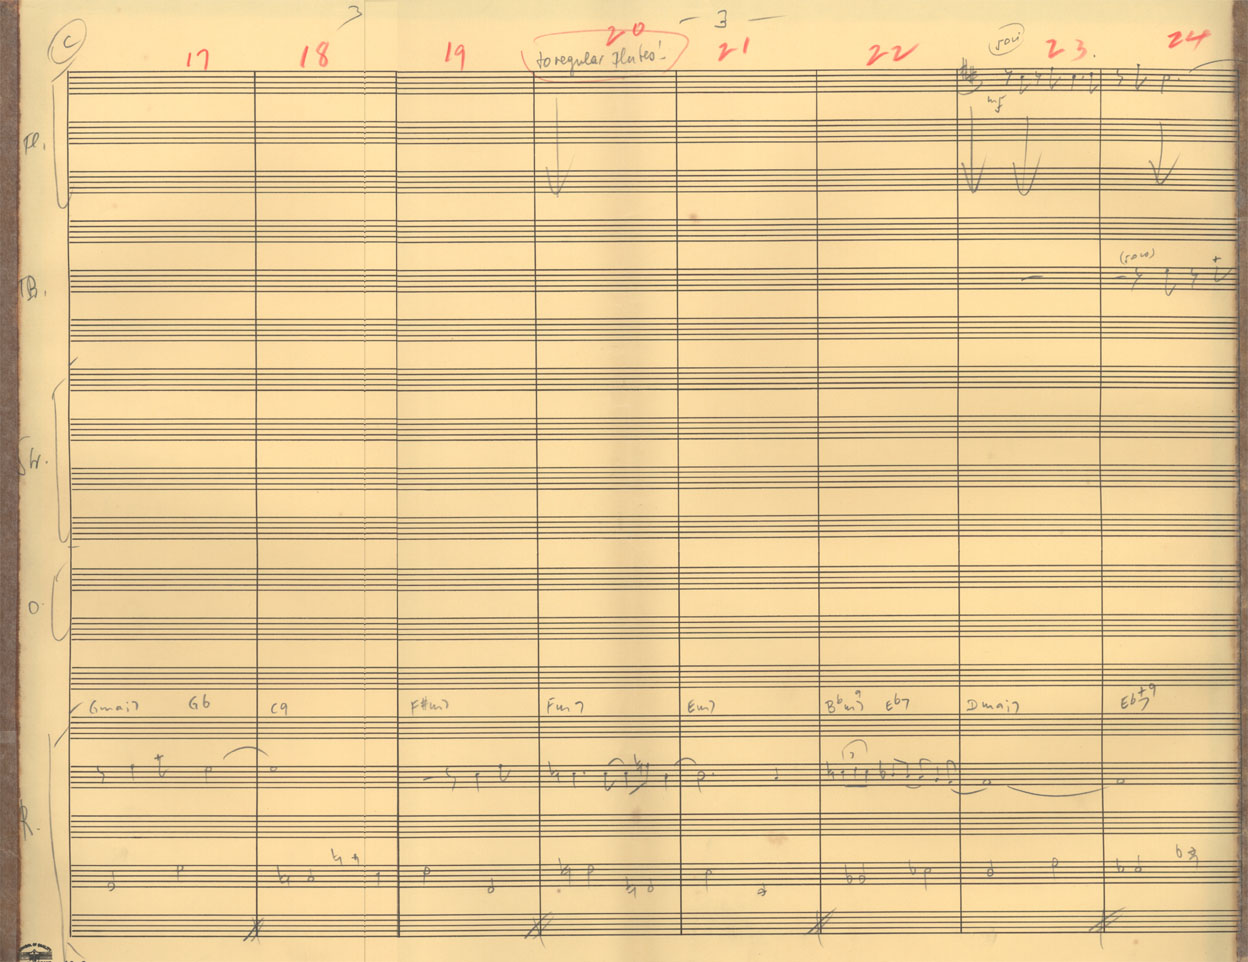 3
- 3 -
C
17 18 19 20 21 22 23. 24
to regular Flutes!
soli
mf
Fl.
(soli)
TB.
Str.
D.
Gmaj7 Gb C9 F#m7 Fm7 Em7 Bbm7 9 Eb7 Dmaj7 Eb7 +9
R.